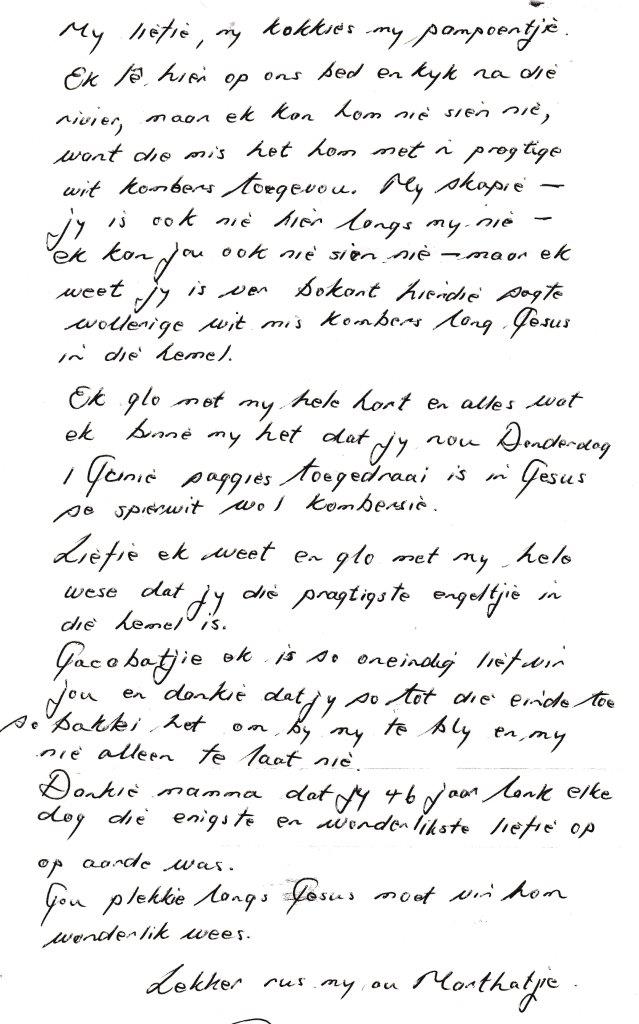 My liefie, my kokkies my pampoentjie.
Ek lê hier op ons bed en kyk na die
rivier, maar ek kan hom nie sien nie,
want die mis het hom met 'n pragtige
wit kombers toegevou. My skapie –
jy is ook nie hier langs my nie –
ek kan jou ook nie sien nie – maar ek
weet jy is ver bokant hierdie sagte
wollerige wit mis kombers lang Jesus
in die hemel.
Ek glo met my hele hart en alles wat
ek binne my het dat jy nou Donderdag
1 Junie saggies toegedraai is in Jesus
se spierwit wol kombersie.
Liefie ek weet en glo met my hele
wese dat jy die pragtigste engeltjie in
die hemel is.
Jacobatjie ek is so oneindig lief vir
jou en dankie dat jy so tot die einde toe
so baklei het om by my te bly en my
nie alleen te laat nie.
Dankie mamma dat jy 46 jaar lank elke
dag die enigste en wonderlikste liefie op
op aarde was.
Jou plekkie langs Jesus moet vir hom
wonderlik wees.
Lekker rus my ou Marthatjie.